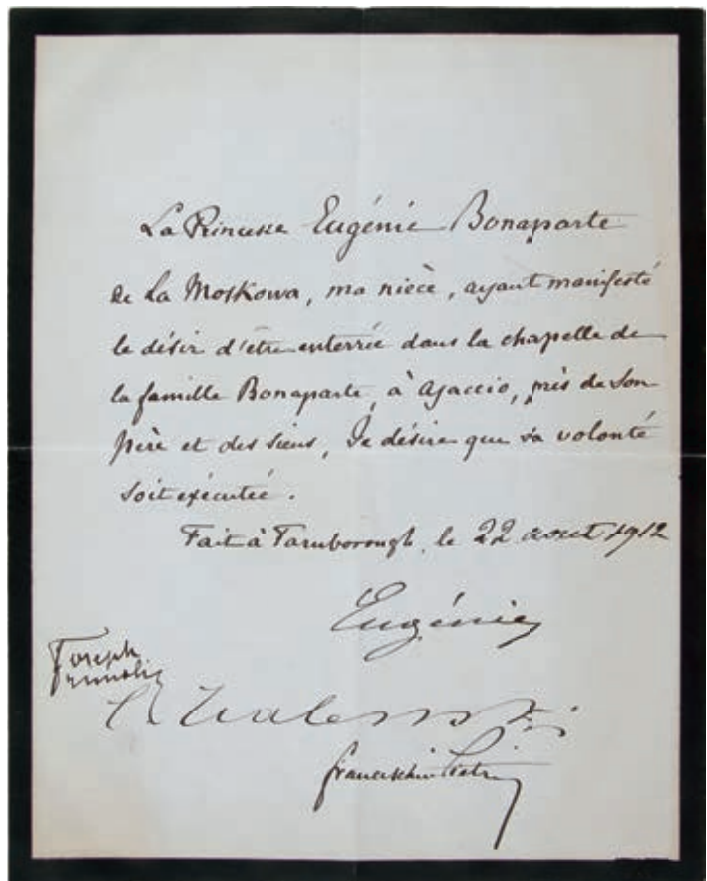 La Princesse Eugénie Bonaparte
de La Moskowa, ma nièce, ayant manifesté
le désir d'être enterrée dans la chapelle de
la famille Bonaparte, à Ajaccio, près de son
père et des siens, Je désire que sa volonté
soit exécutée.
Fait à Farnborough, le 22 août 1912
Eugénie
Joseph
franceschini Pietri